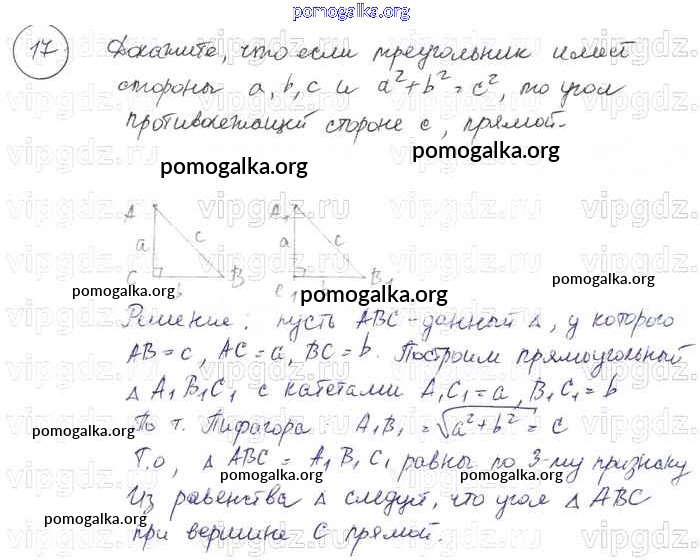 pomogalka.org
17 Докажите, что если треугольник имеет
стороны a, b, c и a² + b² = c², то угол
противолежащий стороне c, прямой.
pomogalka.org
vipgdz.ru
A a c C b B
A₁ a c C₁ b B₁
pomogalka.org
pomogalka.org
pomogalka.org
Решение: пусть ABC - данный Δ, у которого
AB = c, AC = a, BC = b. Построим прямоугольный
Δ A₁B₁C₁ с катетами A₁C₁ = a, B₁C₁ = b
По т. Пифагора: A₁B₁ = √a² + b² = c
pomogalka.org
Т.о, Δ ABC = A₁B₁C₁ равны по 3-му признаку
pomogalka.org
Из равенства Δ следует, что угол Δ ABC
pomogalka.org
при вершине C прямой.
pomogalka.org